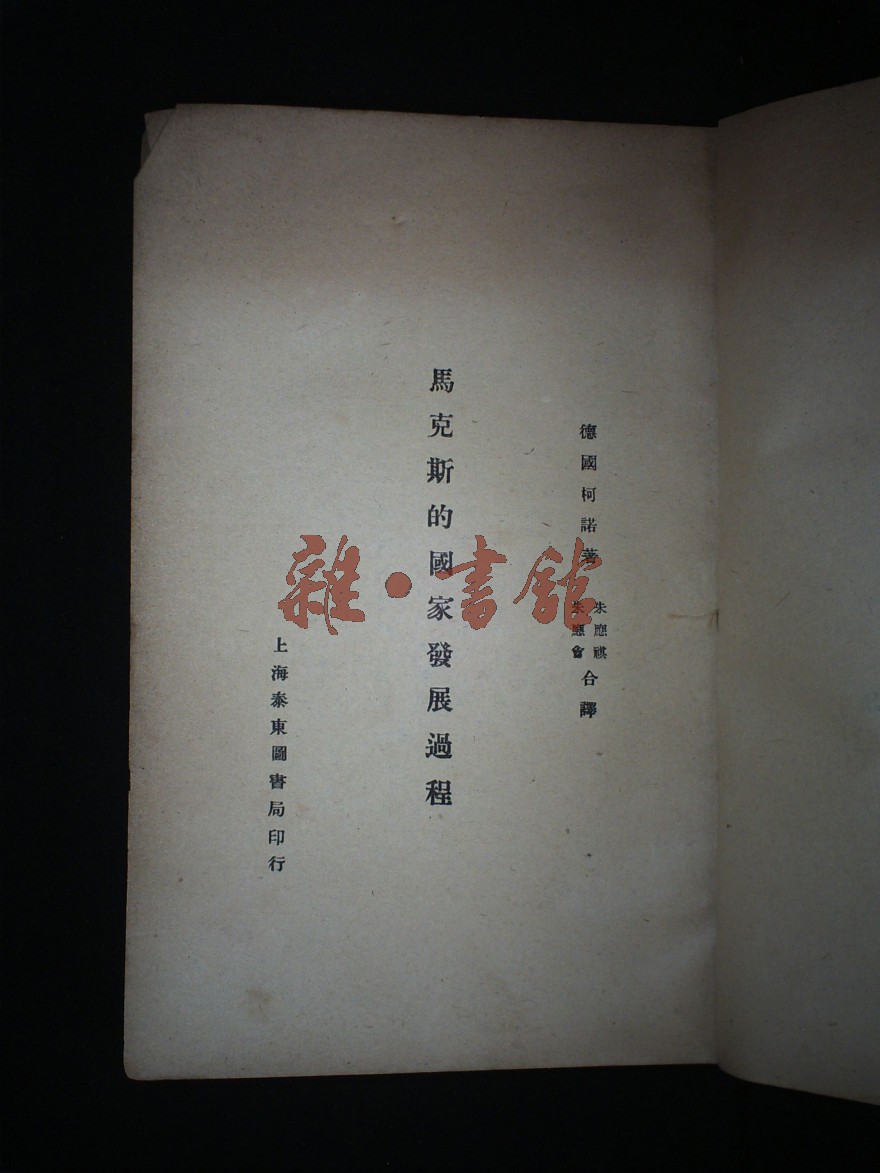 德國柯諾著 朱應祺 朱應會 合譯
馬克斯的國家發展過程
上海泰東圖書局印行
雜·書館